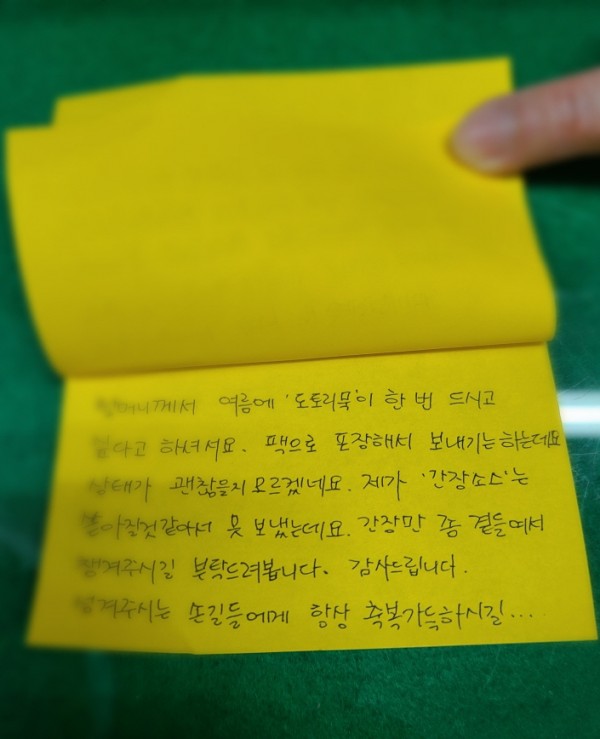 할머니께서 여름에 '도토리묵'이 한 번 드시고
싶다고 하셔서요. 팩으로 포장해서 보내기는하는데요
상태가 괜찮을지모르겠네요. 제가 '간장소스'는
쏟아질것같아서 못 보냈는데요. 간장만 좀 곁들여서
챙겨주시길 부탁드려봅니다. 감사드립니다.
섬겨주시는 손길들에게 항상 축복가득하시길...